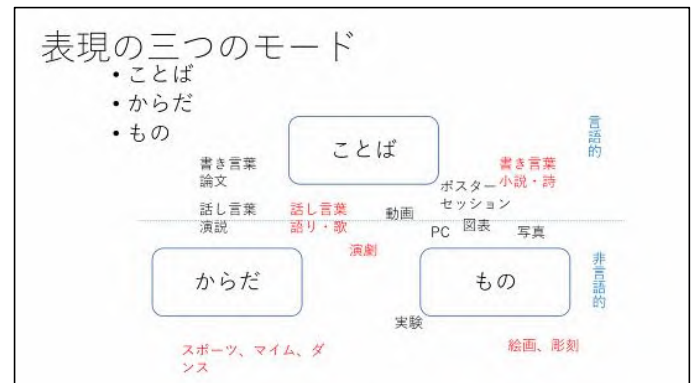 表現の三つのモード
• ことば
• からだ
• もの
ことば
言語的
書き言葉
論文
書き言葉
小説・詩
ポスター
セッション
話し言葉
演説
話し言葉
語り・歌
動画
PC
図表
写真
演劇
からだ
もの
非言語的
実験
スポーツ、マイム、ダ
ンス
絵画、彫刻